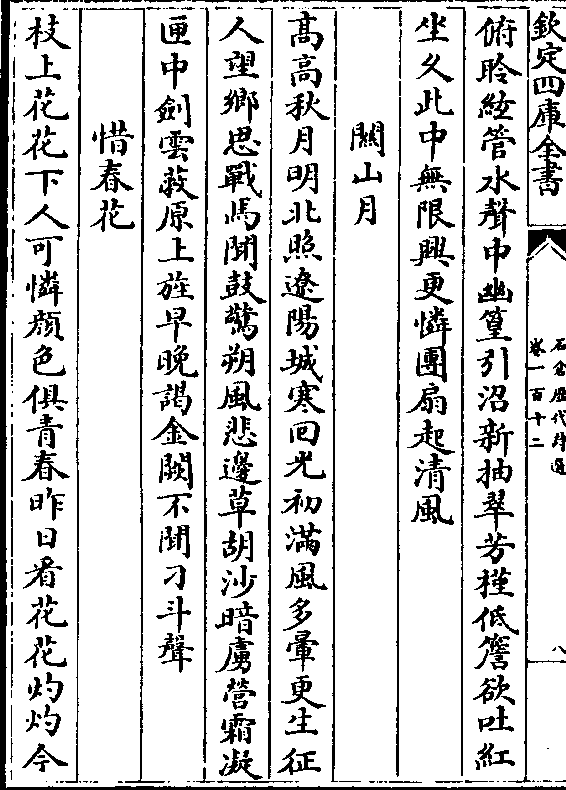 欽定四庫全書
石倉歴代詩選
卷一百十二
八
俯聆絃管水聲中幽篁引沼新抽翠芳槿低簷欲吐紅
坐久此中無限興更憐團扇起清風
關山月
髙高秋月明北照遼陽城寒迥光初滿風多暈更生征
人望鄉思戰馬聞鼓驚朔風悲邊草胡沙暗虜營霜凝
匣中劍雲蔽原上旌早晚謁金闕不聞刁斗聲
惜春花
枝上花花下人可憐顔色俱青春昨日看花花灼灼今